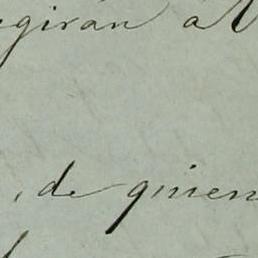 egirán a V
, de quien